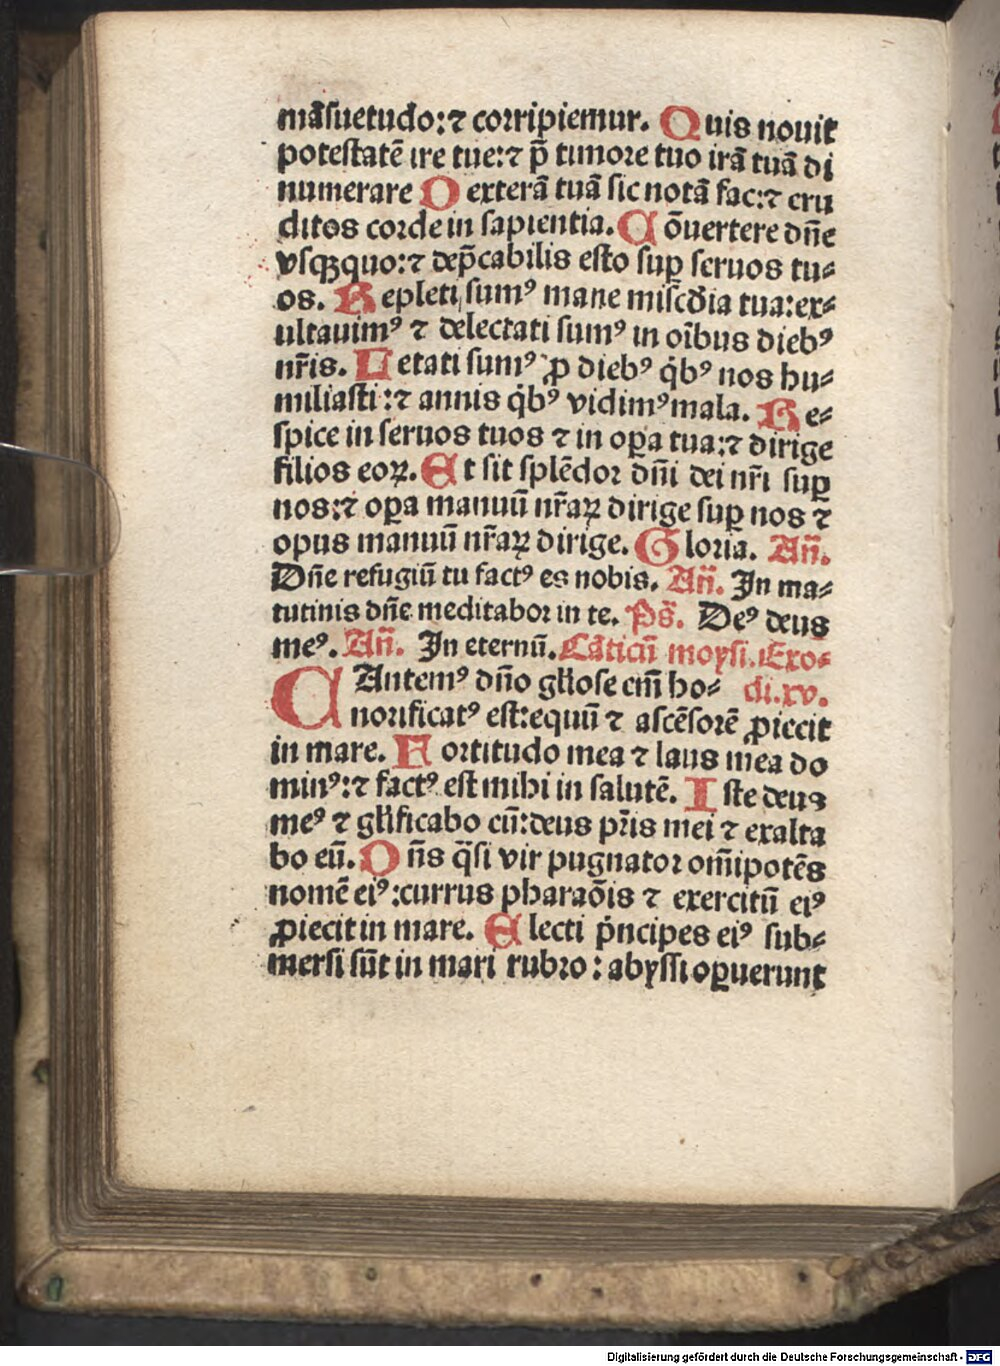 māsuetudo:⁊ corripiemur. Quis nouit
potestatē ire tue:⁊ p̄ timore tuo irā tuā di
numerare Dexterā tuā sic notā fac:⁊ eru
ditos corde in sapientia. Cōuertere dn̄e
vsqꝫquo:⁊ dep̄cabilis esto suꝑ seruos tu⸗
os. Repleti sumꝰ mane miscd̄ia tua:ex⸗
ultauimꝰ ⁊ delectati sumꝰ in oībus diebꝰ
nr̄is. Letati sumꝰ ꝓ diebꝰ q̇bꝰ nos hu⸗
miliasti:⁊ annis q̇bꝰ vidimꝰ mala. Re⸗
spice in seruos tuos ⁊ in oꝑa tua:⁊ dirige
filios eoꝝ. Et sit splēdor dn̄i dei nr̄i suꝑ
nos:⁊ oꝑa manuū nr̄aꝝ dirige suꝑ nos ⁊
opus manuū nr̄aꝝ dirige. Gloria. Añ.
Dn̄e refugiū tu factꝰ es nobis. Añ. In ma⸗
tutinis dn̄e meditabor in te. Ps̄. Deꝰ deus
meꝰ. Añ. In eternū. Cāticū moysi. Exo⸗
di.xv.
CAntemꝰ dn̄o gl̄iose em̄ ho⸗
norificatꝰ est:equū ⁊ ascēsorē ꝓiecit
in mare. Fortitudo mea ⁊ laus mea do
minꝰ:⁊ factꝰ est mihi in salutē. Iste deus
meꝰ ⁊ gl̄ificabo eū:deus pr̄is mei ⁊ exalta
bo eū. Dn̄s q̄si vir pugnator om̄ipotēs
nomē eiꝰ:currus pharaōis ⁊ exercitū eiꝰ
ꝓiecit in mare. Electi ṗncipes eiꝰ sub⸗
mersi sūt in mari rubro: abyssi oꝑuerunt
Digitalisierung gefördert durch die Deutsche Forschungsgemeinschaft - DFG